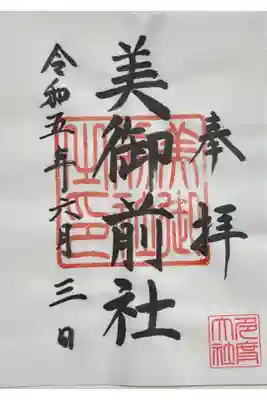 奉拝
美御前社
令和五年六月三日